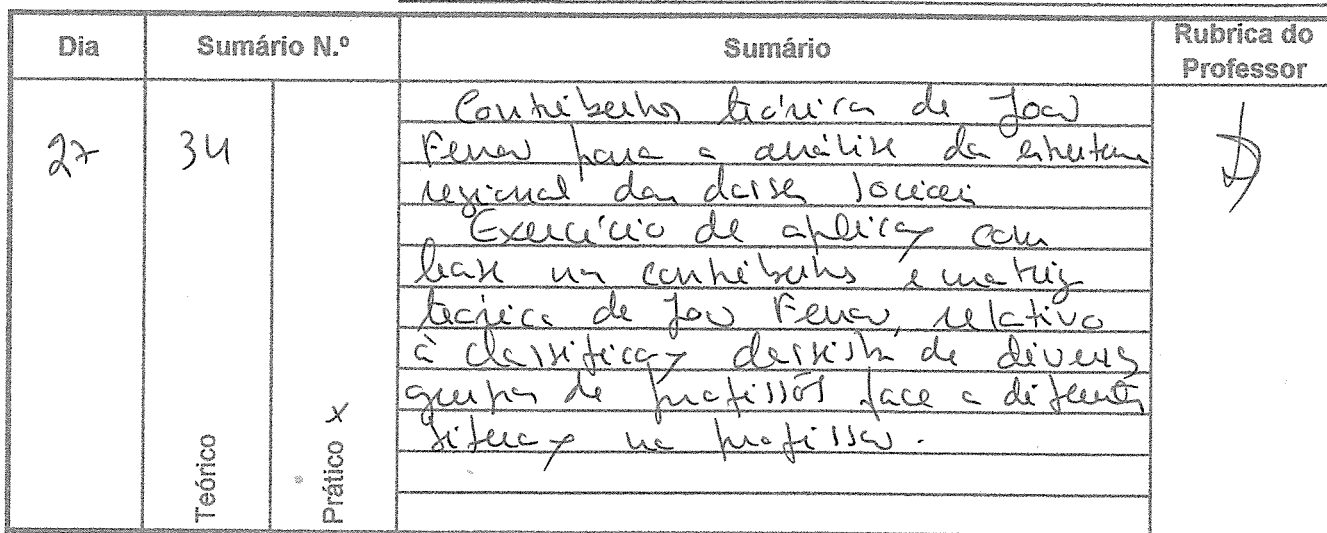 Dia
Sumário N.º
Sumário
Rubrica do
Professor
27
34
Contributos teóricos de João
Ferrão para a análise da estrutura
regional das classes sociais
Exercício de aplicação com
base nos contributos e matriz
teórica de João Ferrão, relativo
à classificação classista de diversos
grupos de profissões face a diferentes
situação na profissão.
Teórico
Prático x